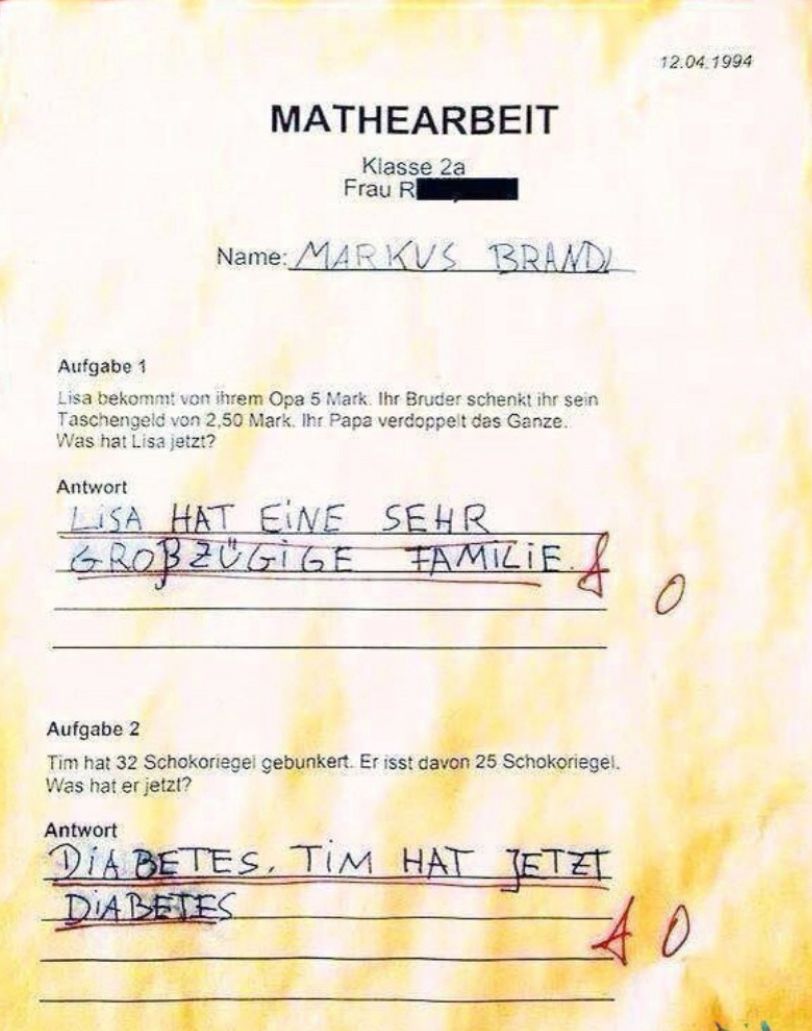 12.04.1994
MATHEARBEIT
Klasse 2a
Frau R
Name: MARKUS BRANDL
Aufgabe 1
Lisa bekommt von ihrem Opa 5 Mark. Ihr Bruder schenkt ihr sein
Taschengeld von 2,50 Mark. Ihr Papa verdoppelt das Ganze.
Was hat Lisa jetzt?
Antwort
LiSA HAT EiNE SEHR
GROßZÜGiGE FAMiLiE.
f 0
Aufgabe 2
Tim hat 32 Schokoriegel gebunkert. Er isst davon 25 Schokoriegel.
Was hat er jetzt?
Antwort
DiABETES. TiM HAT JETZT
DiABETES
f 0